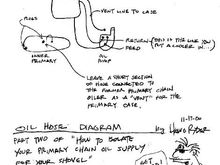 VENT LINE TO CASE
PLUGS
RETURN
FEED
(THIS IS THE LINE YOU
PUT A COOLER IN...)
OIL
PUMP
INNER
PRIMARY
LEAVE A SHORT SECTION
OF HOSE CONNECTED
TO THE FORMER PRIMARY CHAIN
OILER AS A "VENT" FOR THE
PRIMARY CASE.
11-17-00
OIL HOSE DIAGRAM
by
PART TWO OF "HOW TO ISOLATE
YOUR PRIMARY CHAIN OIL SUPPLY
FOR YOUR SHOVEL"